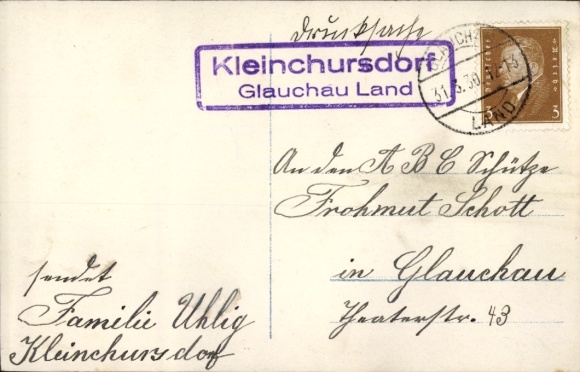 Drucksache
Kleinchursdorf
Glauchau Land
31.3.30.12-13
LAND
3 3
An den ABC Schütze
Frohmut Schott
in Glauchau
Theaterstr. 43
sendet
Familie Uhlig
Kleinchursdorf